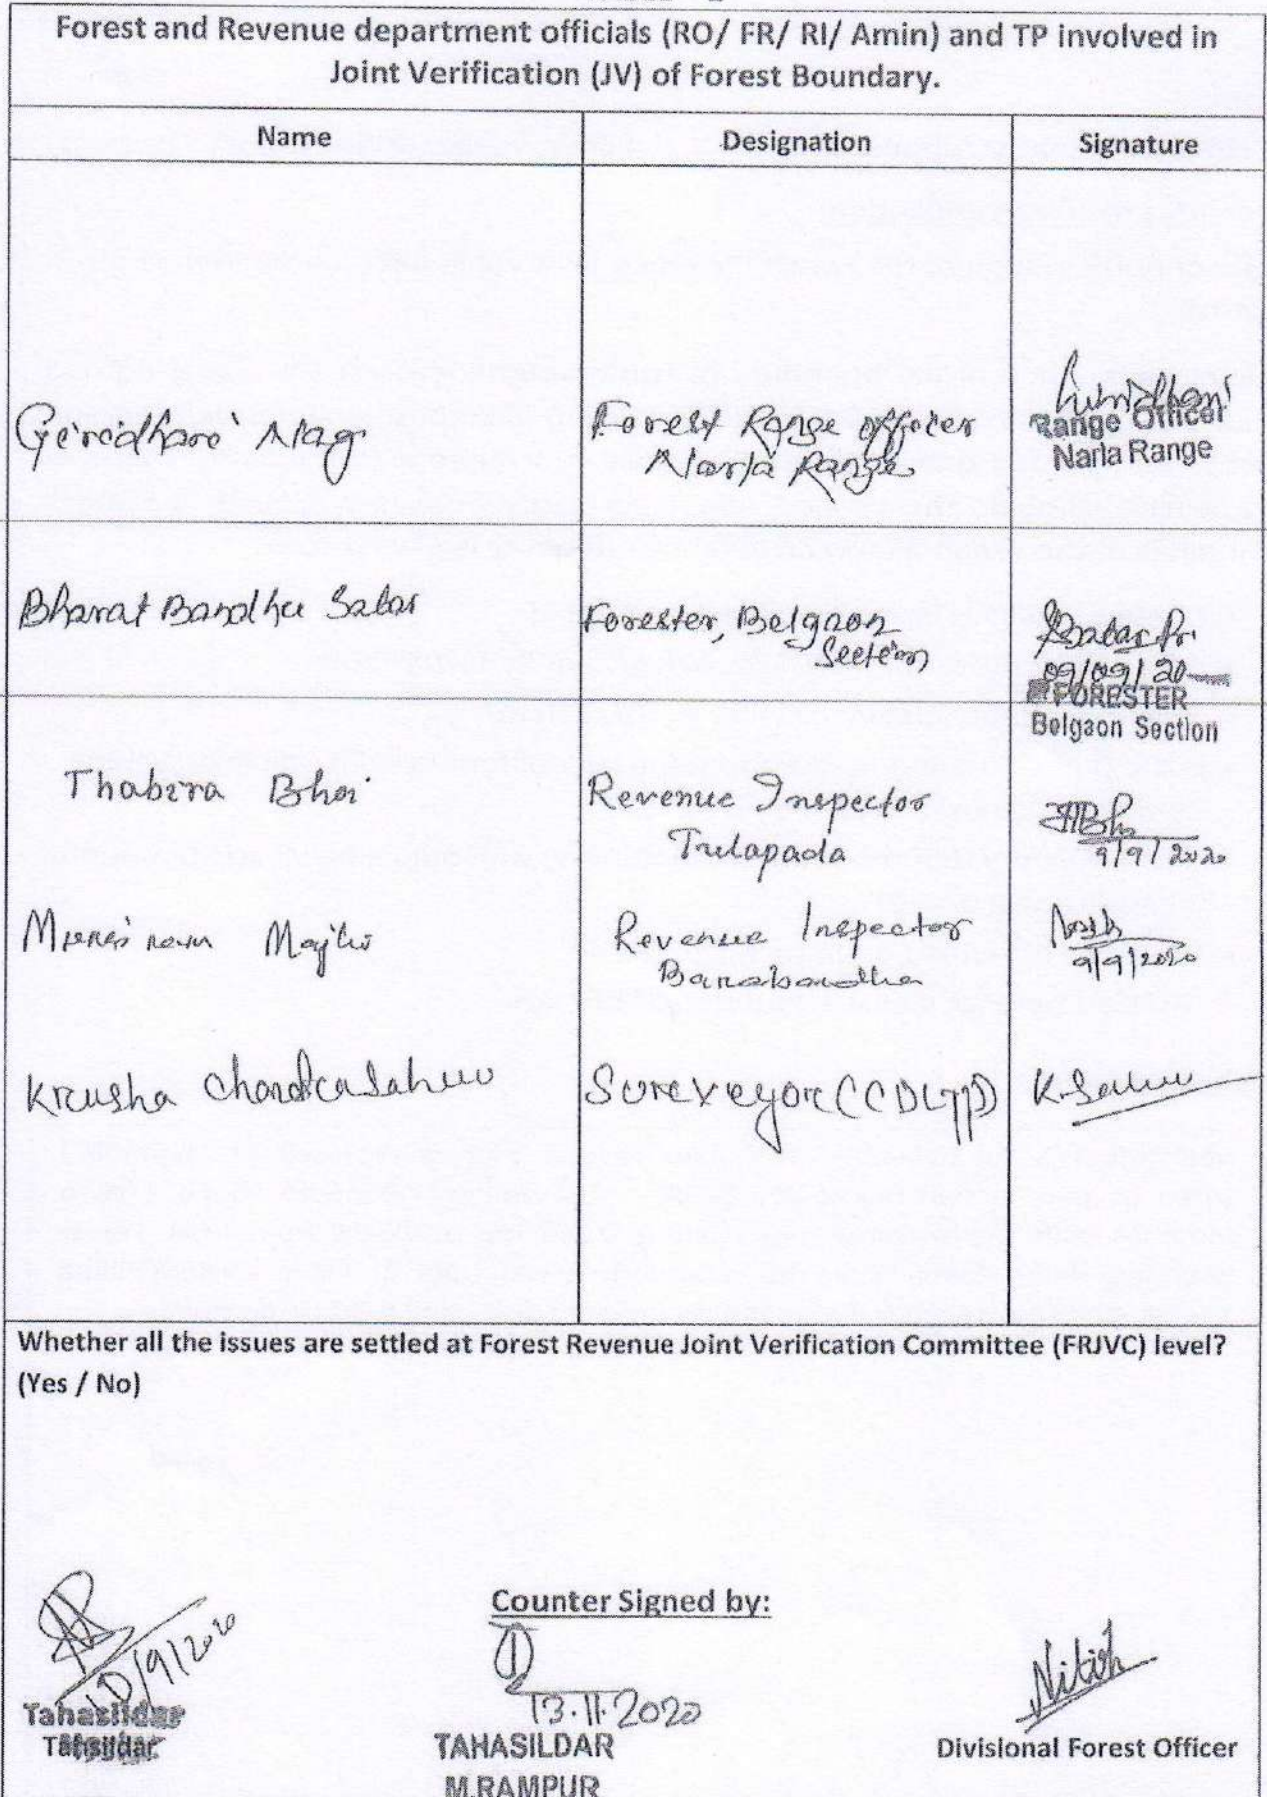 Forest and Revenue department officials (RO/ FR/ RI/ Amin) and TP involved in
Joint Verification (JV) of Forest Boundary.
Name Designation Signature
Nag Forest Range officer
Narla Range
Range Officer
Narla Range
Bharat Bandhu Satar Forester, Belgaon
Section
09/09/20
FORESTER
Belgaon Section
Thabira Bhoi Revenue Inspector
Trilapada
9/9/2020
Majhi Revenue Inspector
9/9/2020
Krusha Chandra Sahuu Surveyor
K. Sahuu
Whether all the issues are settled at Forest Revenue Joint Verification Committee (FRJVC) level?
(Yes / No)
Counter Signed by:
10/9/2020
13.11.2020
Nitish
Tahasildar
Tahsildar
TAHASILDAR
M.RAMPUR
Divisional Forest Officer